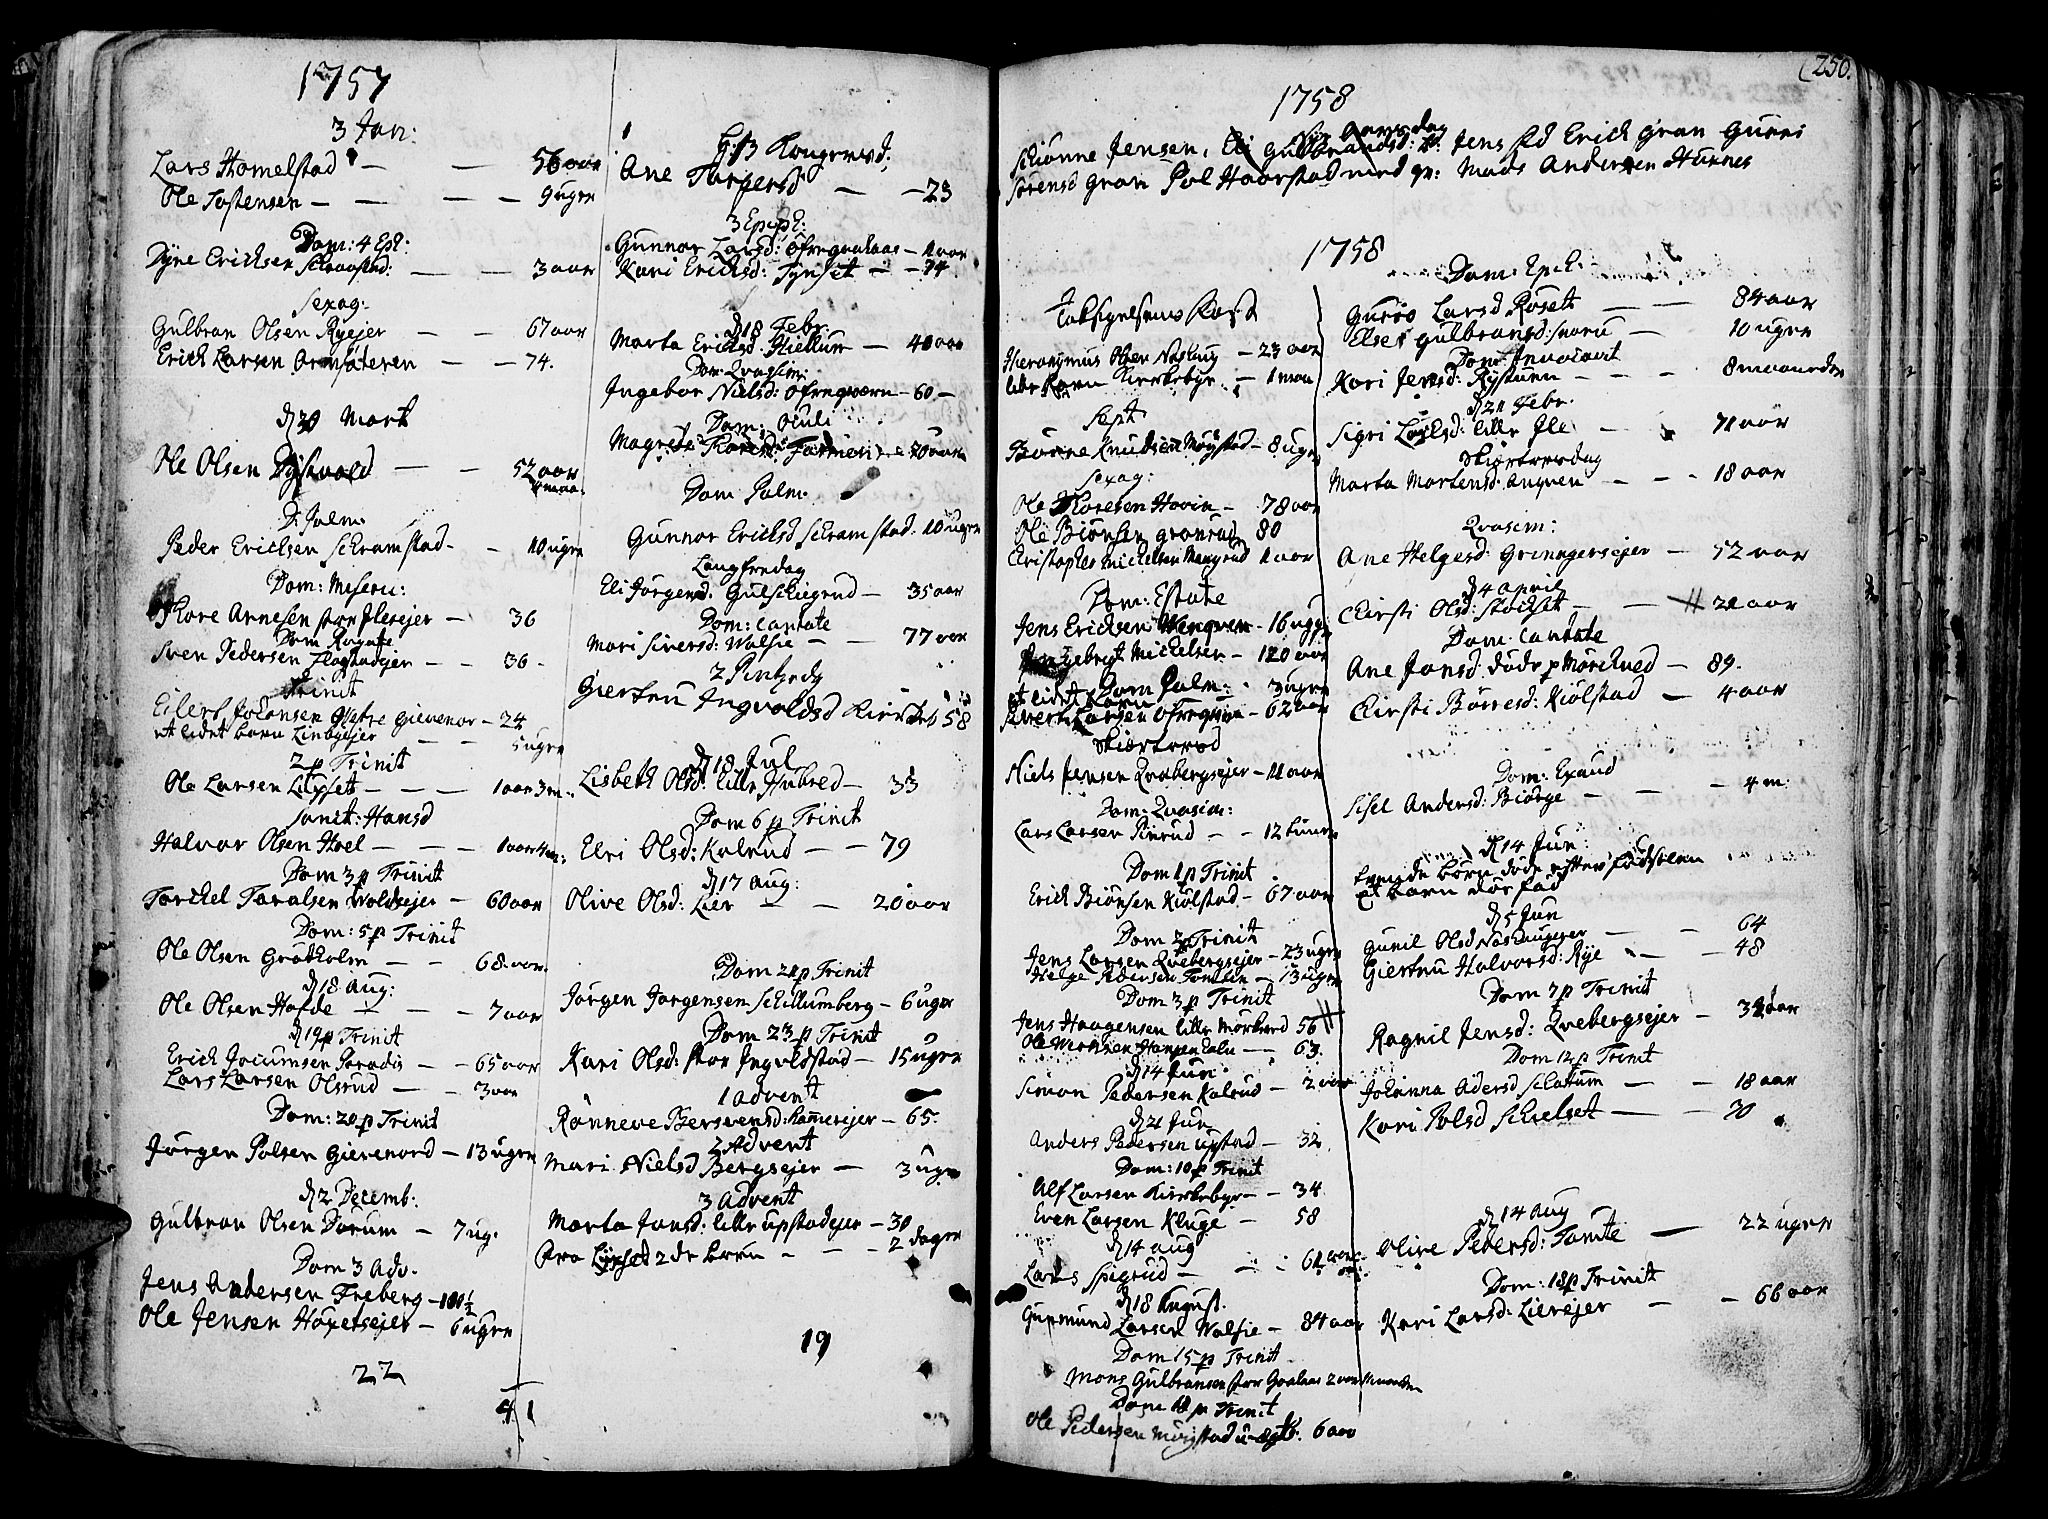 1757
3 Jan:
Lars Homelstad — — 56 aar
Ole Tostensen — — — — 9 uger
Dom: 4 Eph:
Dyre Ericksen Schravstad: — — 3 aar
Sexag:
Gulbran Olsen Ryejer — — 67 aar
Erick Larsen — — 74.
d 20 Mart
Ole Olsen — — 52 aar
D: Palm
Peder Ericksen Schramstad — — 10 uger
Dom: Miseri:
Thore Arnesen stor Ilesejer — 36
Dom Rogate
Sven Pedersen Flagstadejer — — 36 —
Trinit
Eilert Johansen Westre Gievenor — 24
et lidet barn Linbyejer — — 5 uger
2 p Trinit
Ole Larsen Lilset — — — 1 aar 3 m.
Sanct: Hansd
Halvor Olsen Hoel — — — 1 aar 4 m:
Dom 3 p Trinit
Torchel Taralsen Woldsejer — 60 aar
Dom: 5 p Trinit
Ole Olsen Grötholm — — 68 aar.
d 18 Aug:
Ole Olsen Hofde — — — 7 aar
d 19 p Trinit
Erich Jocumsen Paradis — — 65 aar
Lars Larsen Olsrud — — 3 aar
Dom: 20 p Trinit
Jörgen Polsen Gievenord — 13 uger
d 2 Decemb:
Gulbran Olsen Dorum — 7 ug.
Dom 3 Adv.
Jens Andersen Freberg — 100 ½
Ole Jensen Hoxetsejer — 6 uger
22
41
H: 3 Kongersd:
Ane Torgersd — — 23
3 Epiph:
Gunnor Larsd: — 1 aar
Kari Ericksd: Tynset — — 74
d 18 Febr.
Marta Ericksd: Hiellum — 40 aar
Dom: Qvasim:
Ingebor Nielsd: öfreqvern — 60 —
Dom: Oculi
Magrete
Dom Palm.
Gunnor Ericksd Schramstad. 10 uger
Langfredag
Eli Jörgensd: Gulschiegrud — 35 aar
Dom: Cantate
Mari Siversd: Wolsie — — 77 aar
2 Pintzedg
Giertru Ingvoldsd 58
d 18 Jul
Lisbeth Olsd: lille Hubred — 33
Dom 6 p Trinit
Elri Olsd: Kolrud — — 79
d 17 Aug:
Olive Olsd: Lier — — 20 aar
Dom 21 p Trinit
Jörgen Jorgensen Schillumberg — 6 uger
Dom 23 p Trinit
Kari Olsd: stor Ingvoldstad — 15 uger
1 Advent
Rönneve Bersvensd: Kammersejer — 65.
2 Advent
Mari Nielsd Bergsejer — 3 uger
3 Advent
Marta Jonsd: lille upstadejer — 30
Pro Lilset 2 de börn — — — 2 dager
19
(250.
1758
Nye Aarsdag
Schionne Jensen, Eli Gulbransd: Jens Erick Gran Gurri
Sörensd Gran Pol Haarstad med qv: Mads Andersen Hurnes
1758
Taksigelsens Fest
Hieronymus Olsen Naskug — 23 aar
lille barn Kirckebye — 1 maa
Sept
Börre Knudsen Möystad — 8 uger
Sexag:
Ole Thoresen Hovin — 78 aar
Ole Biönsen Granrud 80
Christopher Mickelsen 1 aar
Dom: Estate
Jens Ericksen Wenqvern — 16 uger
Engebregt Mickelsen — 120 aar
Dom Palm:
et lidet barn 3 uger
Sivert Larsen — 62 aar
Skiertersd
Niels Jensen Qvebergsejer — 11 aar
Dom: Qvasim:
Lars Larsen Finrud — — 12 timer
Dom 1 p Trinit
Erick Biönsen Kiölstad — 67 aar
Dom 2 Trinit
Jens Larsen Qvebergsejer — 23 uger
Helge Pedersen Tomten — 13 uger
Dom 3 p Trinit
Jens Haagensen lille Mörkved 56
Ole Monsen — 63.
d 14 Jun.
Simon Pedersen Kolrud — 2 aar
d 21 Jun
Anders Pedersen upstad — 32
Dom: 10 p Trinit
Alf Larsen Kirckebye — — 34
Even Larsen Kluge — 58
d 14 Aug
Lars Spigrud — — 61 aar
d 18 August.
Gudmund Larsen Wolsie — 84 aar
Dom 15 p Trinit
Mons Gulbransen stor 2 aar
Dom 18 p Trinit
Ole Pedersen Möystad 6 aar
Dom: Epih:
Guroe Larsd Roset — — 84 aar
Else Gulbransd: — 10 uger
Dom: Invocavit
Kari Jensd: Rystuen — — — 8 maaneder
d 21 Febr.
Sigri lille Ile — — 71 aar
Skiertorsdag
Marta Mortensd: Anqvern — — — 18 aar
Qvasim:
Ane Helgesd: Grinngersejer — 52 aar
d 4 April
Chirsti Olsd: Stochset — — 21 aar
Dom: Cantate
Ane Jonsd: död p Mörckved — 89.
Chirsti Börresd: Kiölstad — 4 aar
Dom: Exaud
Sisel Andersd: Biörge — — — 4 m.
d 14 Jun:
tvende börn döde efter födselen
et barn dör fad
d 5 Jun
Gunil Olsd Naskugejer — — 64
Giertru Halvorsd: Rye — — 48
Dom 7 p Trinit
Ragnil Jensd: Qvebergsejer — 32 aar
Dom 12 p Trinit
Johanna Adersd Slattum — — 18 aar
Kari Polsd Schielset — — 30
d 14 Aug
Olive Pedersd: Tomte — 22 uger
Dom: 18 p Trinit
Kari Larsd: Lierejer — — 66 aar